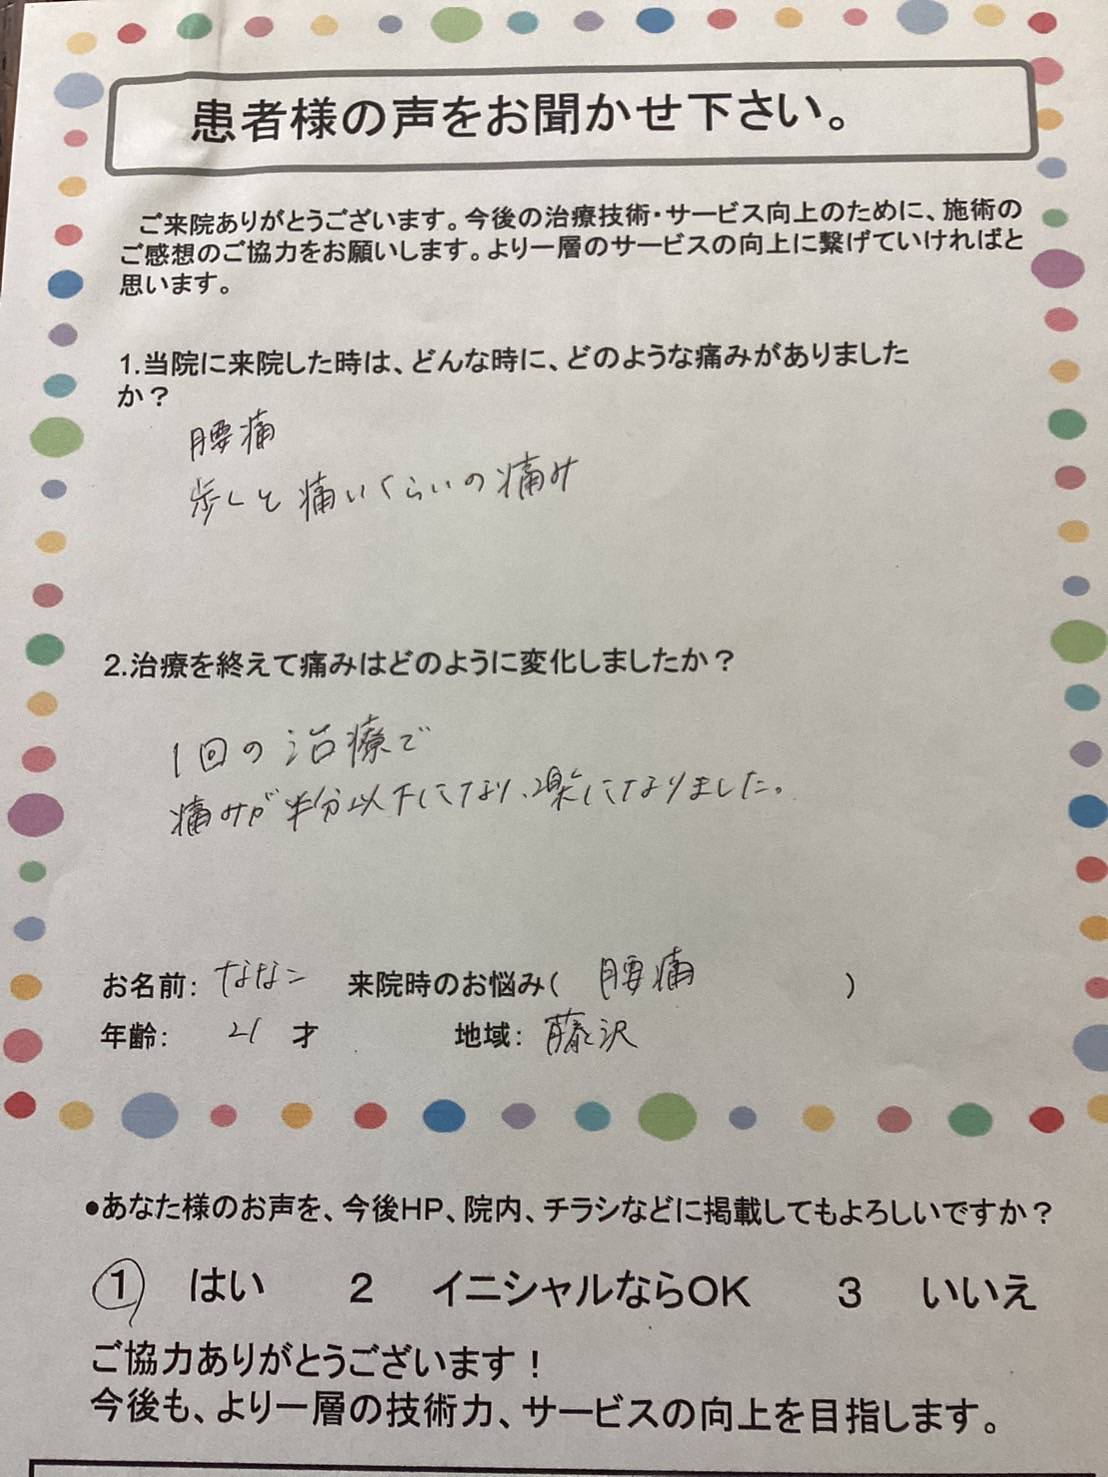 患者様の声をお聞かせ下さい。
ご来院ありがとうございます。今後の治療技術・サービス向上のために、施術の
ご感想のご協力をお願いします。より一層のサービスの向上に繋げていければと
思います。
1.当院に来院した時は、どんな時に、どのような痛みがありました
か？
腰痛
歩くと痛いくらいの痛み
2.治療を終えて痛みはどのように変化しましたか？
1回の治療で
痛みが半分以下になり、楽になりました。
お名前： ななこ 来院時のお悩み（ 腰痛 ）
年齢： 21 才 地域： 藤沢
●あなた様のお声を、今後HP、院内、チラシなどに掲載してもよろしいですか？
1 はい 2 イニシャルならOK 3 いいえ
ご協力ありがとうございます！
今後も、より一層の技術力、サービスの向上を目指します。